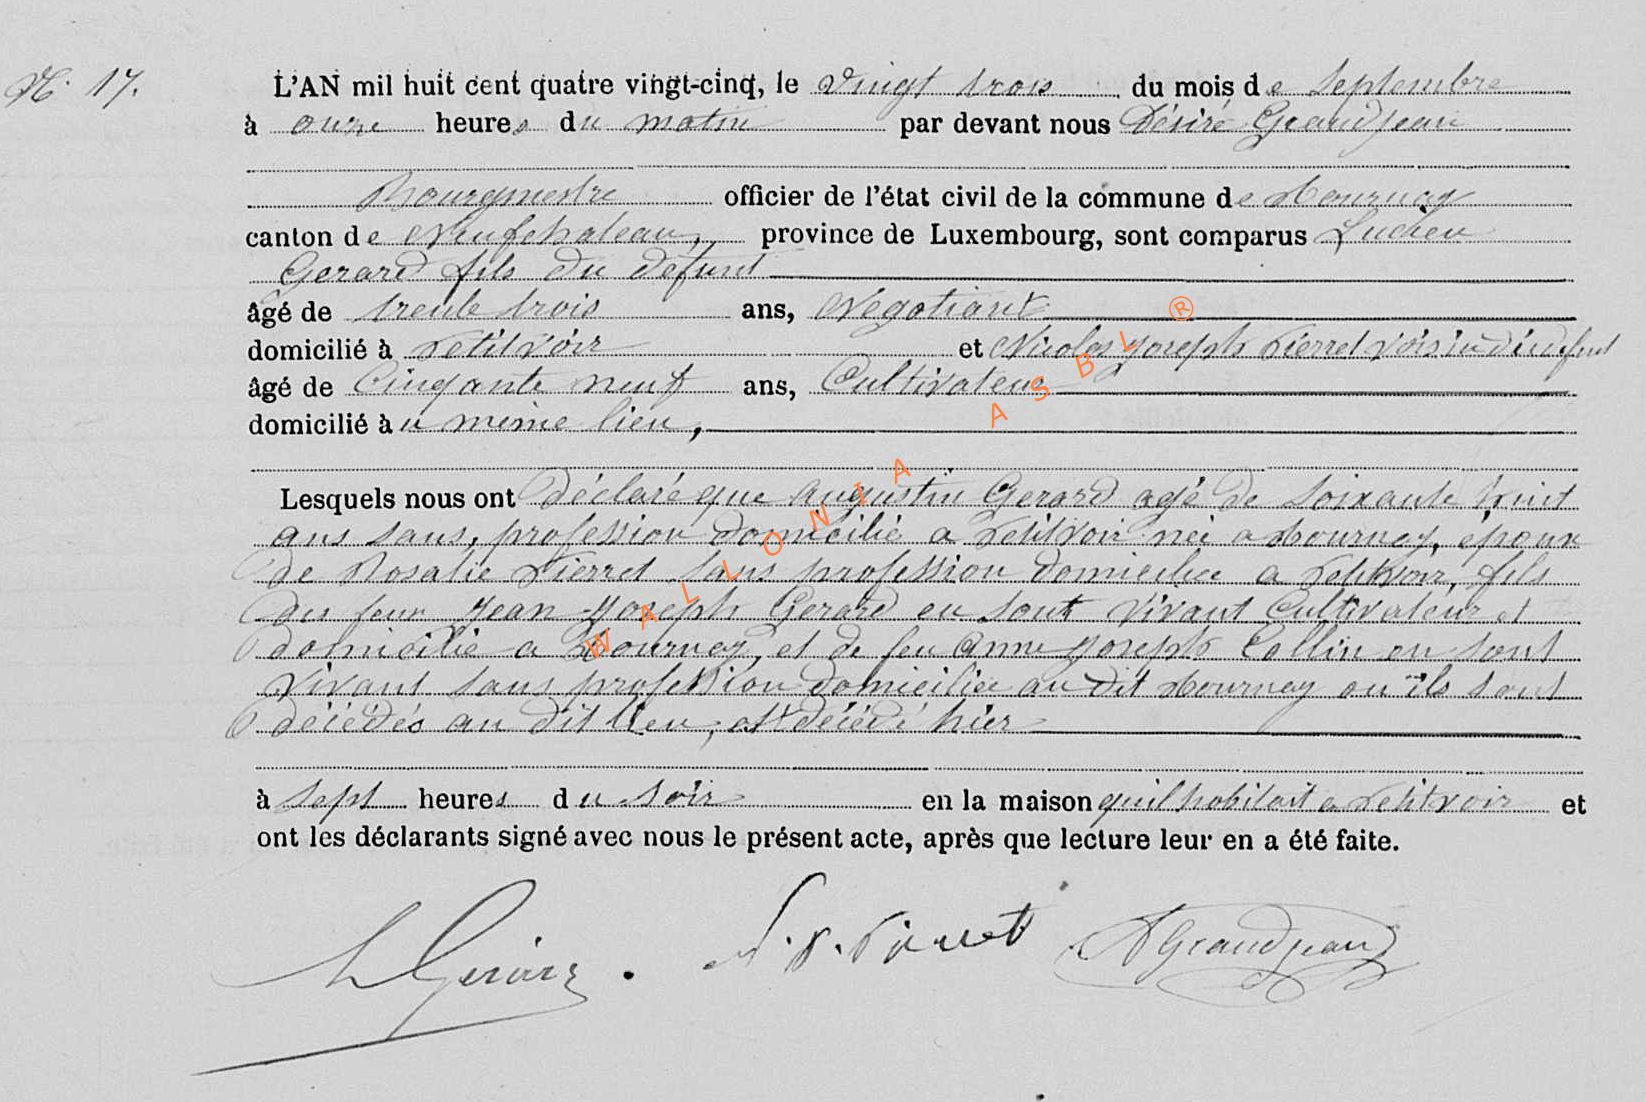 N. 17.
L'AN mil huit cent quatre vingt-cinq, le vingt trois du mois de Septembre
à onze heures du matin par devant nous Désiré Grandjean
Bourgmestre officier de l'état civil de la commune de Tournay
canton de Neufchateau, province de Luxembourg, sont comparus Lucien
Gerard fils du défunt
âgé de trente trois ans, Négotiant
domicilié à Petitvoir et Nicolas Joseph Pierret voisin du défunt
âgé de Cinqante neuf ans, Cultivateur
domicilié au même lieu,
Lesquels nous ont déclaré que Augustin Gerard agé de soixante huit
ans sans, profession domicilié a Petitvoir né a Tournay, époux
de Rosalie Pierret sans profession domiciliée a Petitvoir, fils
des feux Jean Joseph Gerard en sont vivant Cultivateur et
domicilié a Tournay, et de feu Anne Joseph Collin en sont
vivant sans profession domiciliée au dit Tournay ou ils sont
décédés au dit lieu, est décédé hier
à sept heures du soir en la maison qu'il habitait a Petitvoir et
ont les déclarants signé avec nous le présent acte, après que lecture leur en a été faite.
L Gerard. Pierret D Grandjean
WALLONIA ASBL ®